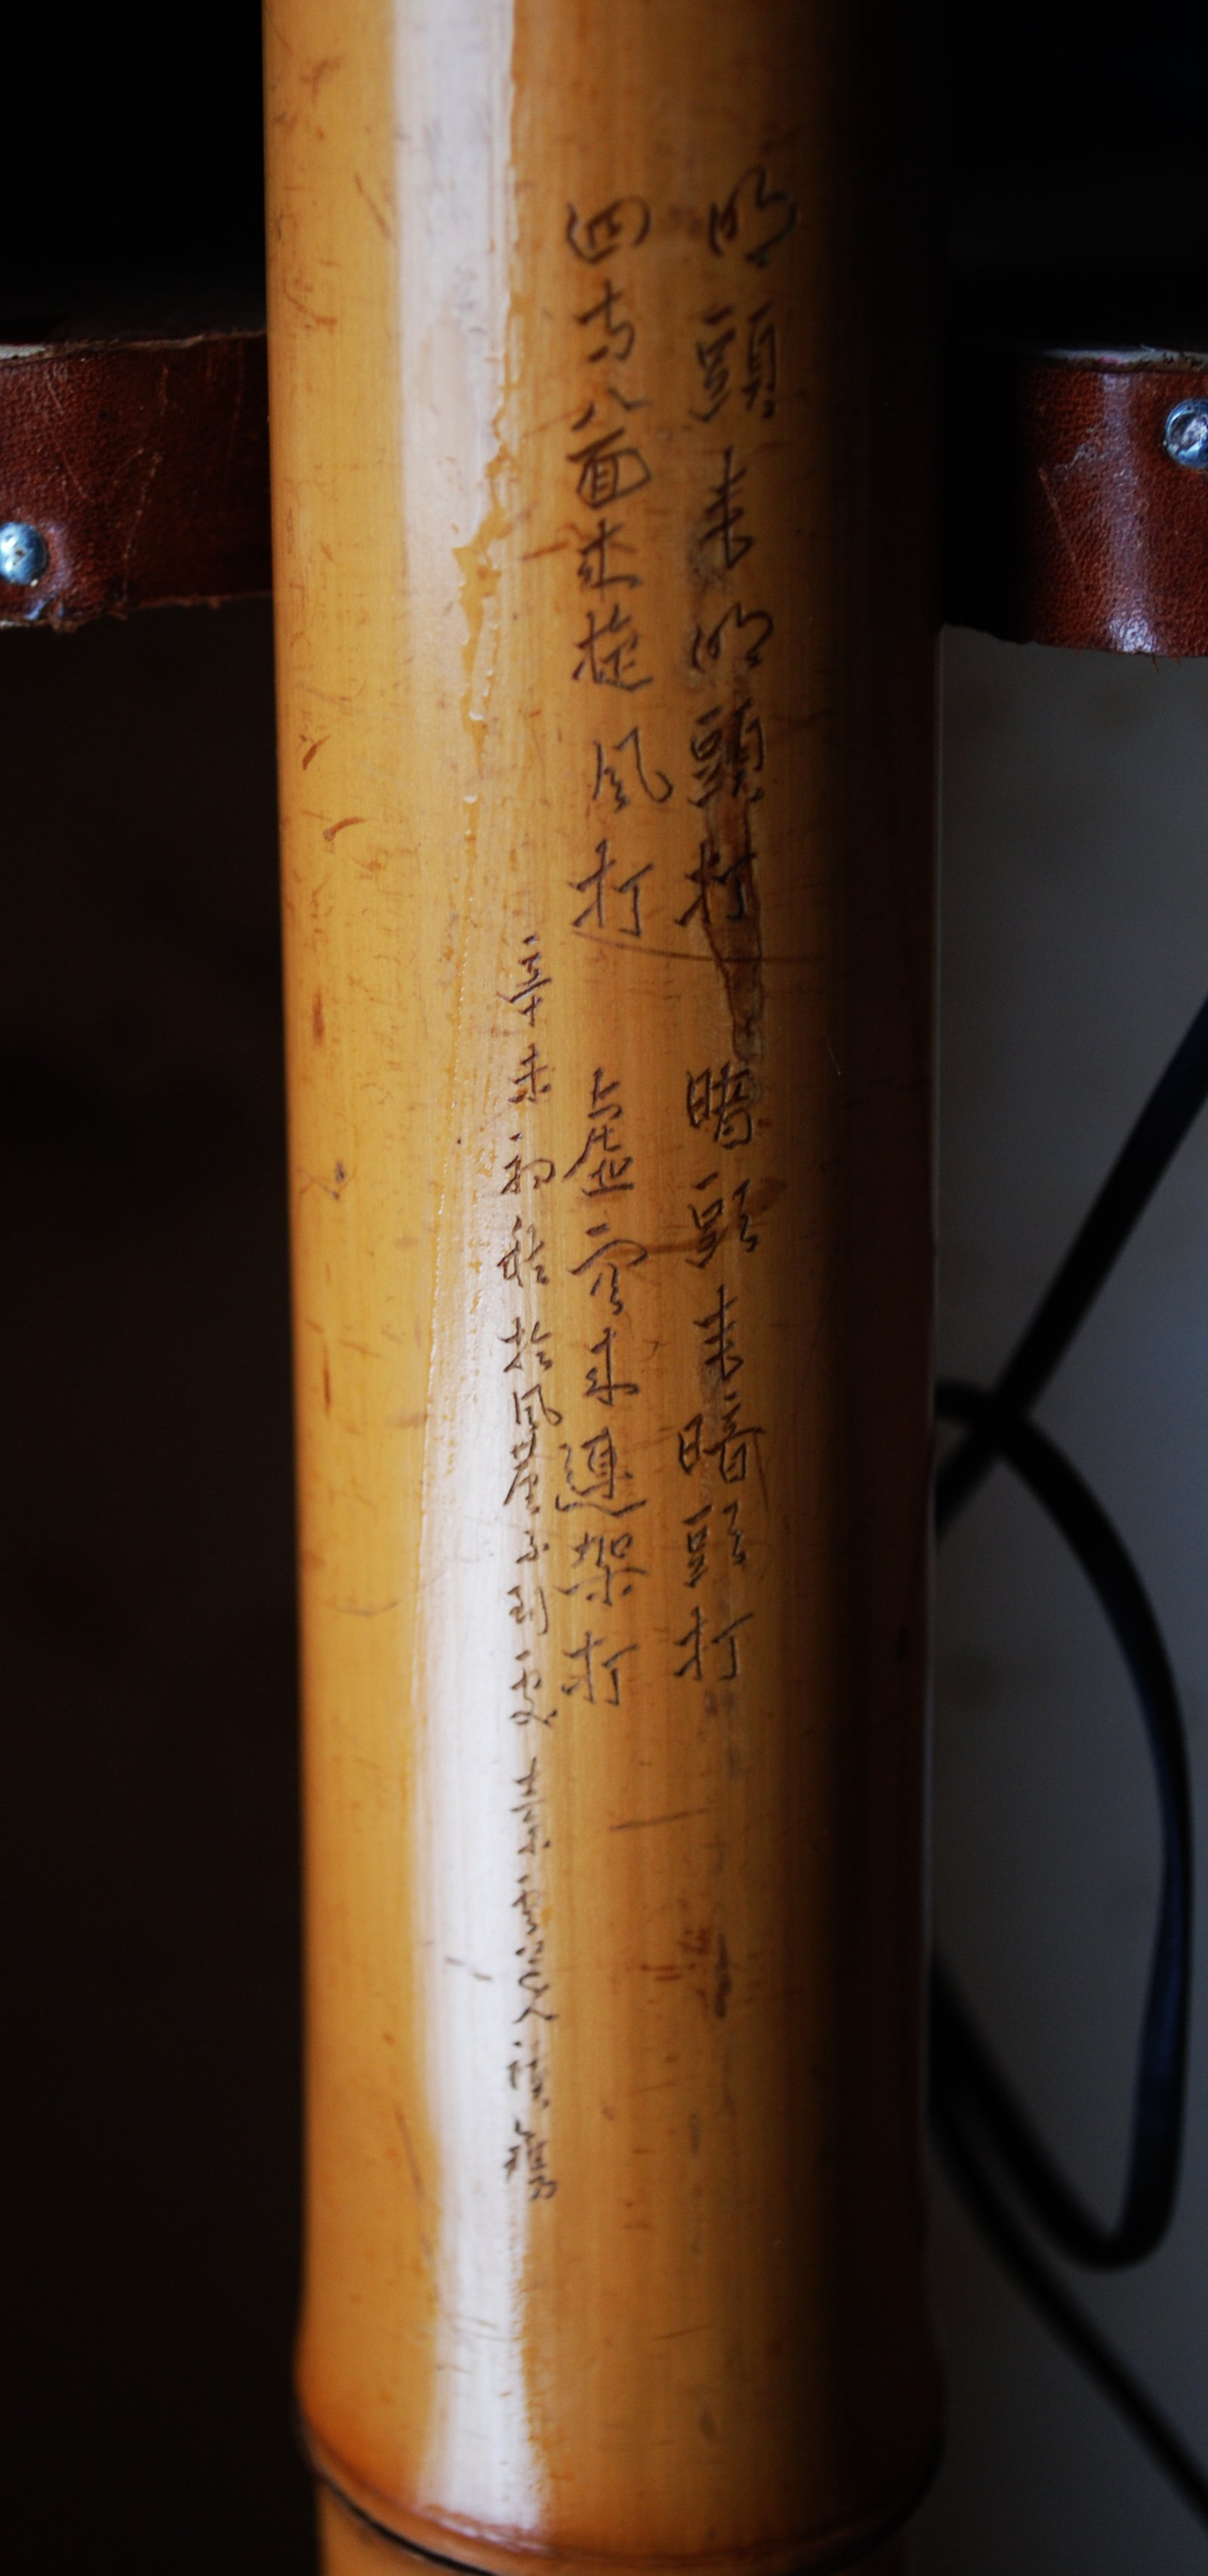 明頭来明頭打 暗頭来暗頭打
四方八面来旋風打 虚空来連架打
辛未初秋於風